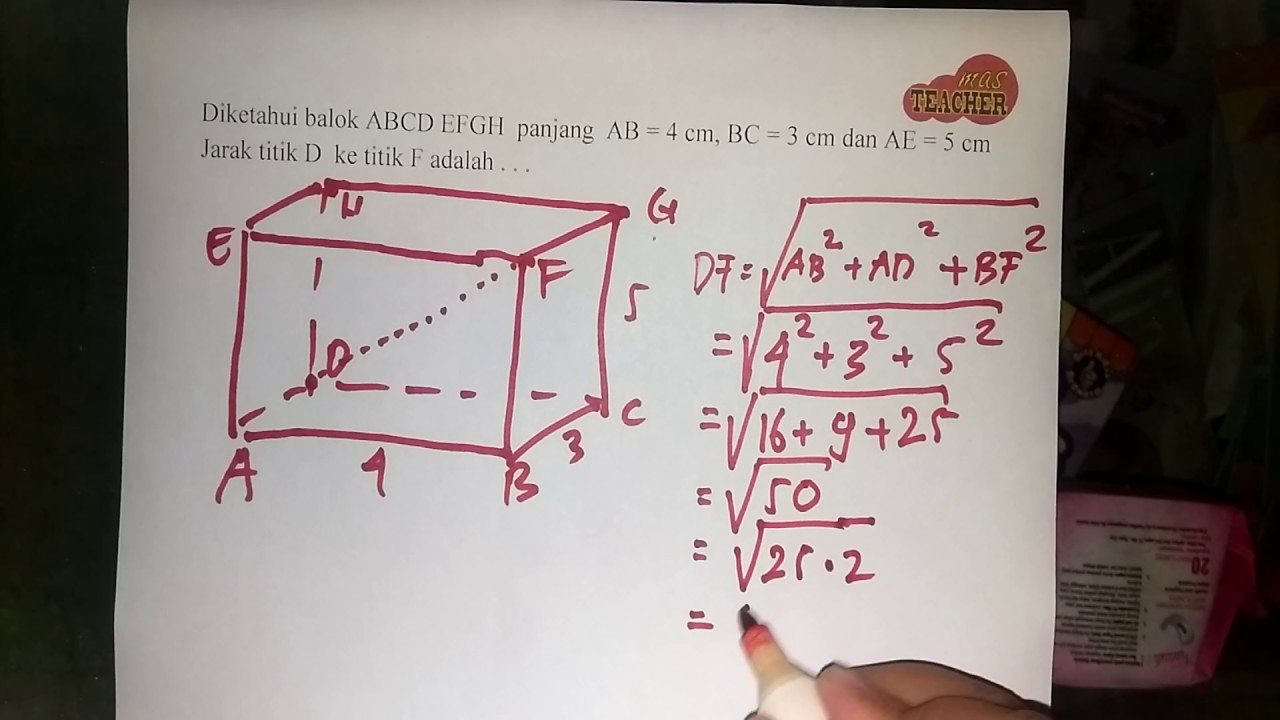 mas
TEACHER
Diketahui balok ABCD EFGH panjang AB = 4 cm, BC = 3 cm dan AE = 5 cm
Jarak titik D ke titik F adalah . . .
H
G
E
F
5
D
C
3
A
4
B
DF = √AB² + AD² + BF²
= √4² + 3² + 5²
= √16 + 9 + 25
= √50
= √25 · 2
=
20